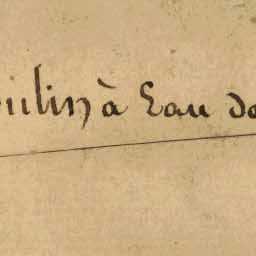 oulin à Eau de